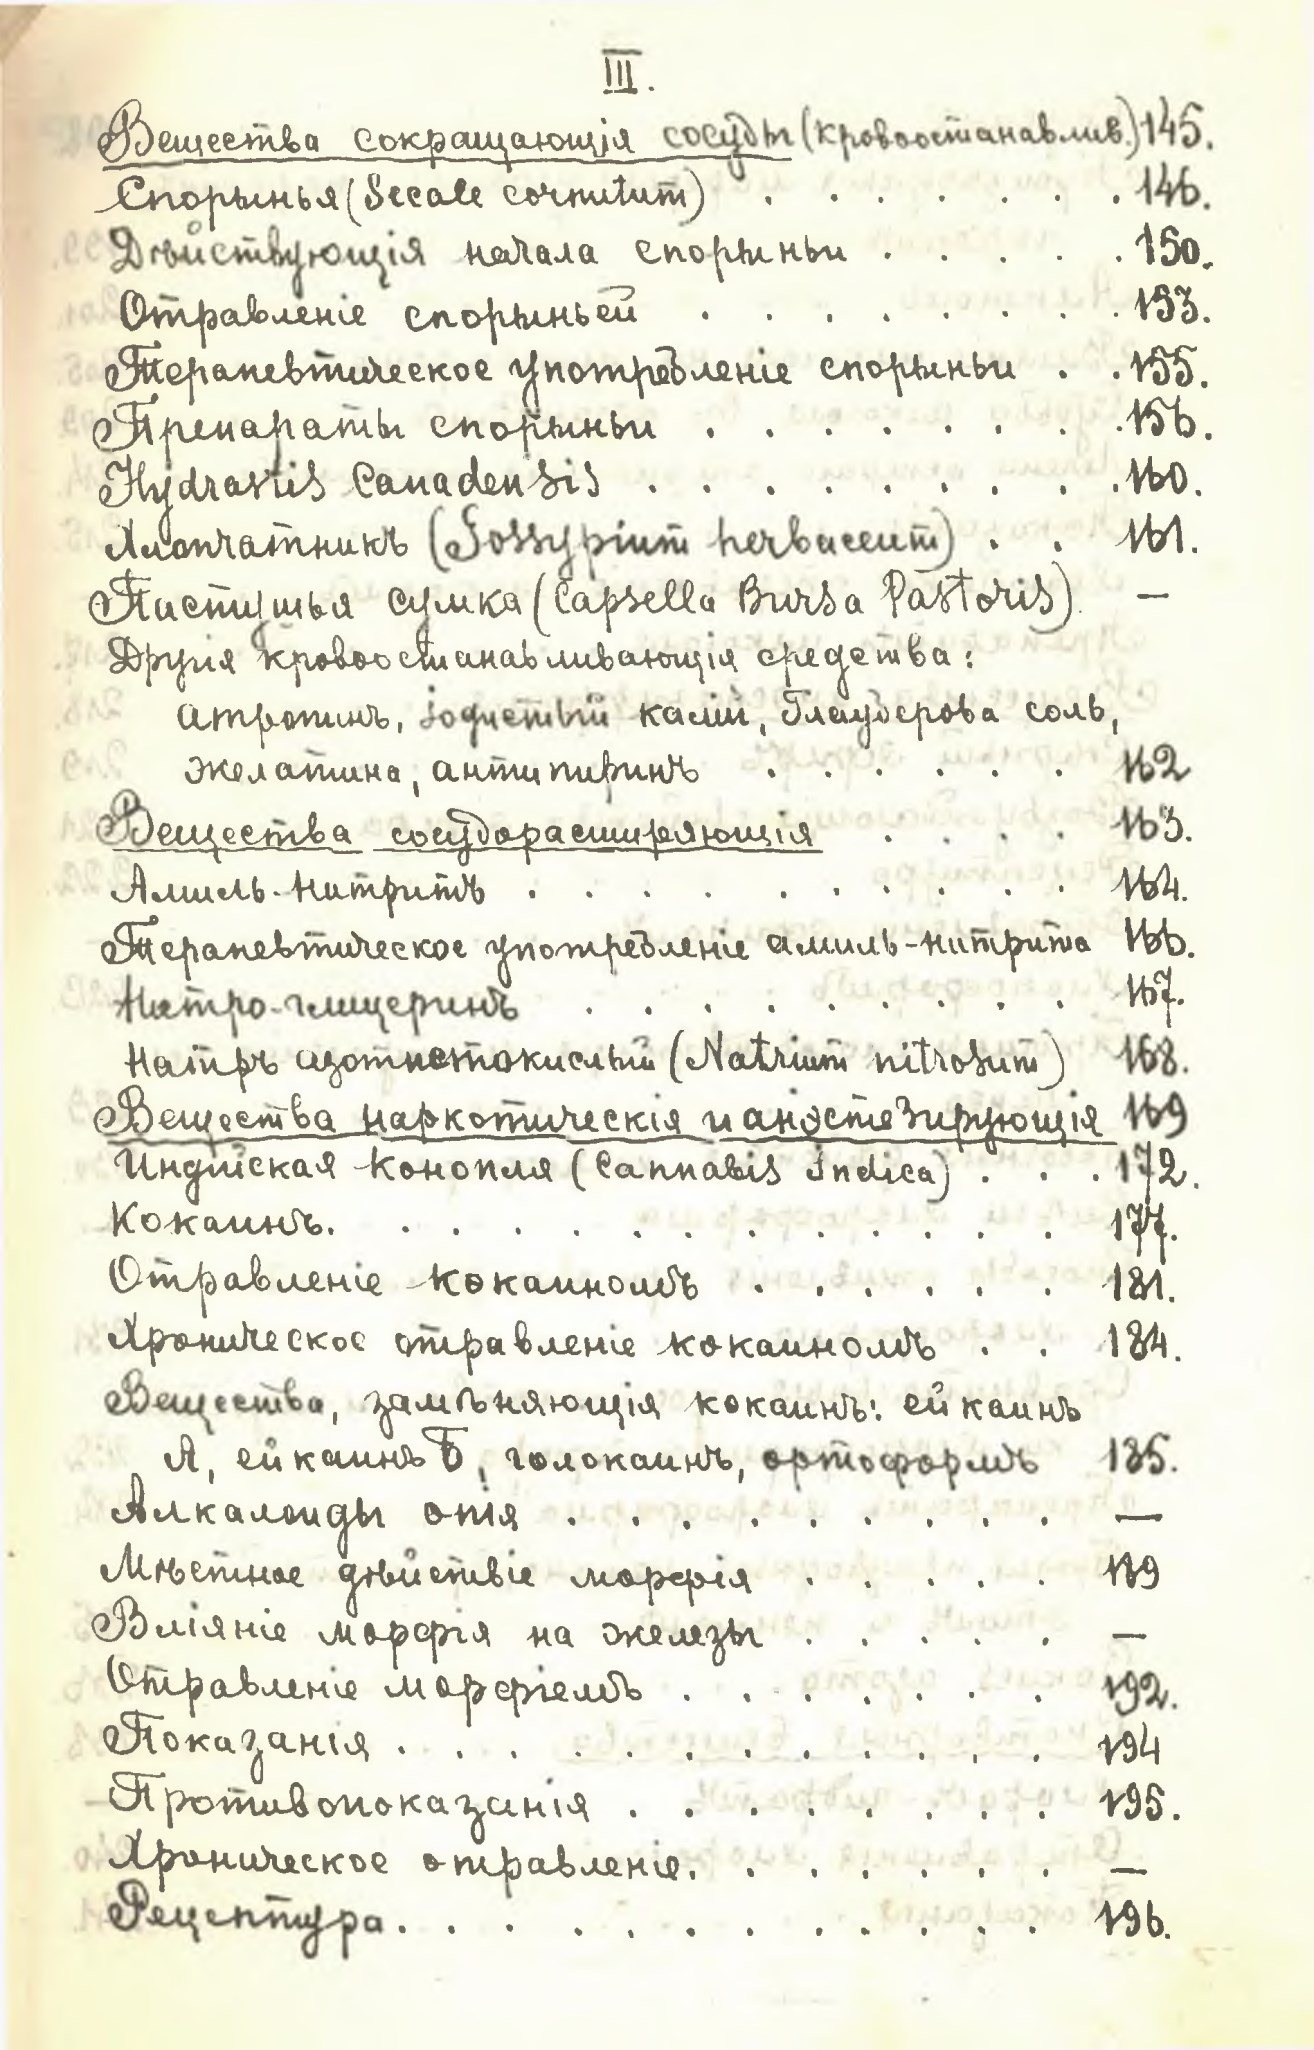 III.
Вещества сокращающія сосуды (кровоостанавлив.) 145.
Спорынья (Secale cornutum) . . . . . . . 146.
Дѣйствующія начала спорыньи . . . . . 150.
Отравленіе спорыньей . . . . . . . . 153.
Терапевтическое употребленіе спорыньи . . 155.
Препараты спорыньи . . . . . . . . 156.
Hydrastis Canadensis . . . . . . . . . 160.
Хлопчатникъ (Gossypium herbaceum) . . 161.
Пастушья сумка (Capsella Bursa Pastoris) —
Другія кровоостанавливающія средства:
атропинъ, іодистый калій, Глауберова соль,
желатина, антипиринъ . . . . . . 162
Вещества сосудорасширяющія . . . . 163.
Амиль-нитритъ . . . . . . . . . . 164.
Терапевтическое употребленіе амиль-нитрита 166.
Нитро-глицеринъ . . . . . . . . . 167.
Натръ азотистокислый (Natrium nitrosum) 168.
Вещества наркотическія и анэстезирующія 169
Индійская конопля (Cannabis Indica) . . . 172.
Кокаинъ. . . . . . . . . . . . . 177.
Отравленіе кокаиномъ . . . . . . 181.
Хроническое отравленіе кокаиномъ . . 184.
Вещества, замѣняющія кокаинъ: ейкаинъ
А, ейкаинъ Б, голокаинъ, ортоформъ 185.
Алкалоиды опія . . . . . . . . . —
Мѣстное дѣйствіе морфія . . . . . 189
Вліяніе морфія на железы . . . . . —
Отравленіе морфіемъ . . . . . . . 192.
Показанія . . . . . . . . . . . . 194
Противопоказанія . . . . . . . . 195.
Хроническое отравленіе. . . . . . . —
Рецептура. . . . . . . . . . . . 196.